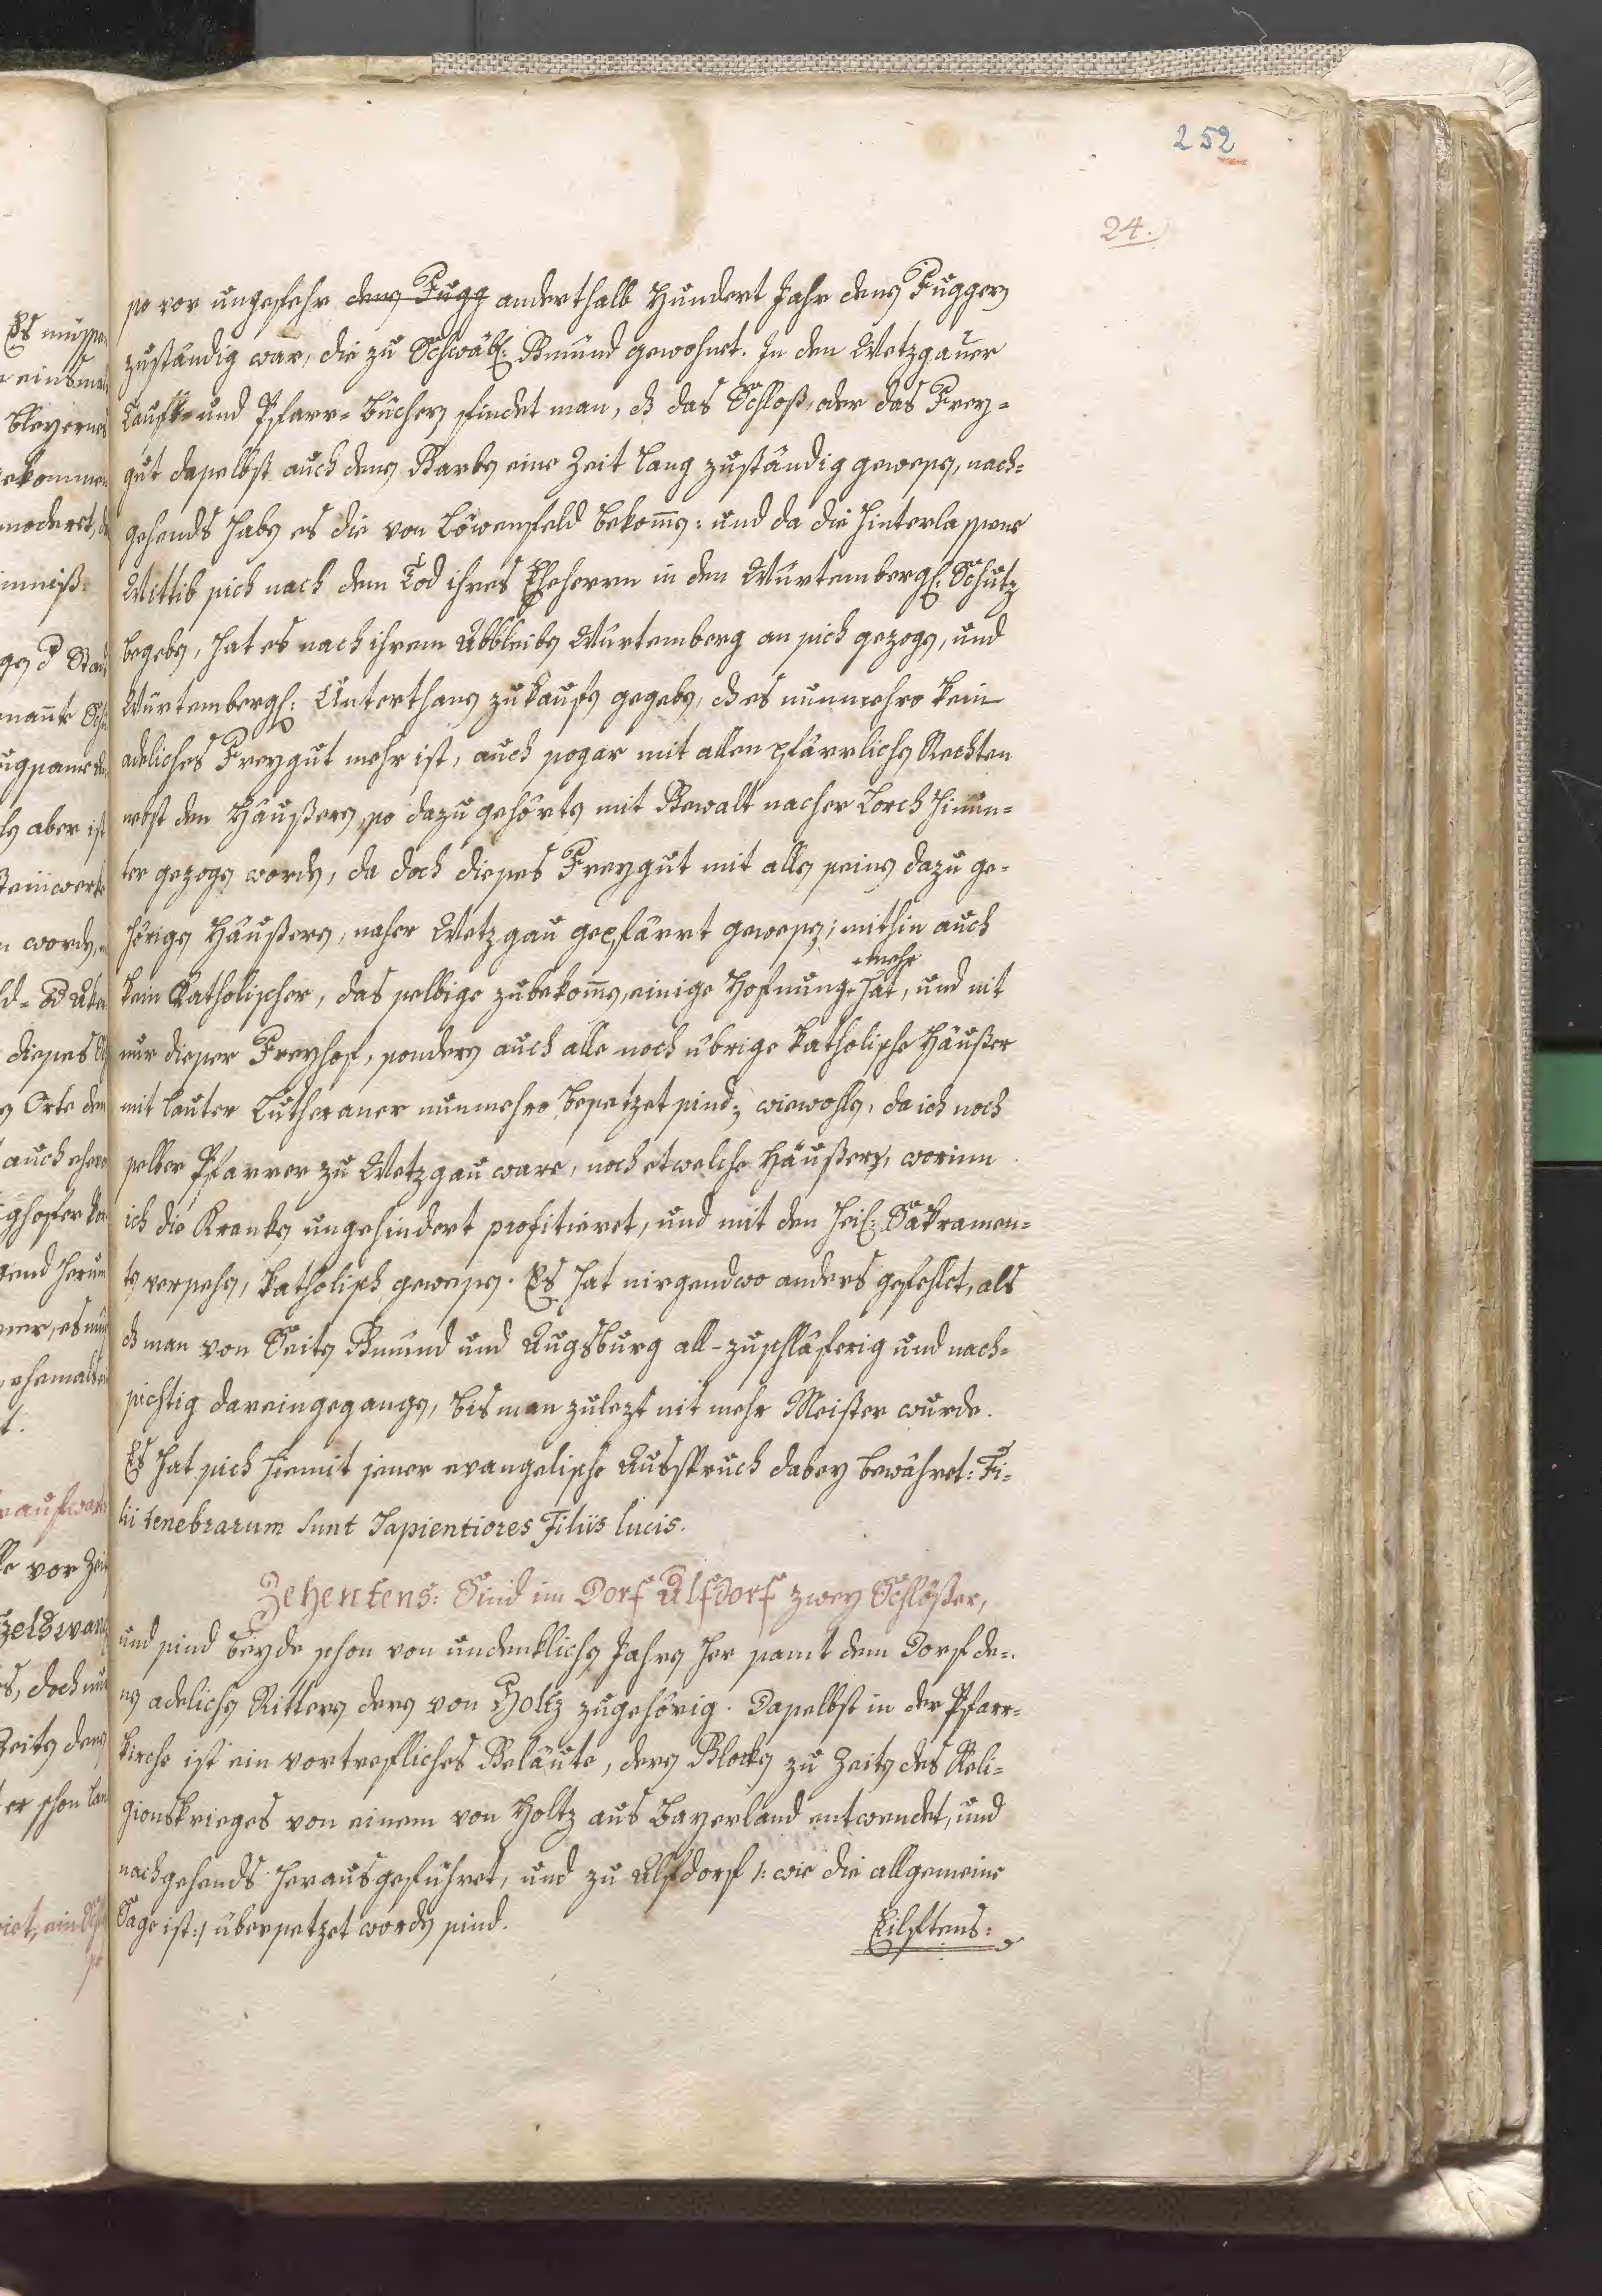 252
24.
so vor ungefehr denen Fugg anderthalb Hundert Jahr denen Fuggern
zuständig war, die zu Schwäb: Gmünd gewohnet. In den Wetzgauer
Tauff- und Pfarr-Büchern findet man, dß das Schloß, oder das Frey-
gut daselbst auch denen Barben eine Zeit lang zuständig gewesen, nach-
gehends haben es die von Löwenfeld bekomen: und da die hinterlassene
Wittib sich nach dem Tod ihres Eheherrn in den Würtembergl: Schutz
begeben, hat es nach ihrem Ableiben Würtemberg an sich gezogen, und
Würtembergl: Unterthanen zu kaufen gegeben, dß es nunmehro kein
adeliches Freygut mehr ist, auch sogar mit allen pfärrlichen Rechten
nebst den Häußern, so dazu gehörten mit Gewalt nacher Lorch hinun-
ter gezogen worden, da doch dieses Freygut mit allen seinen dazu ge-
hörigen Häußern, naher Wetzgau gepfärrt gewesen; mithin auch
kein Katholischer, das selbige zubekomen, einige Hofnung mehr hat, und nit
nur dieser Freyhof, sondern auch alle noch übrige katholische Häußer
mit lauter Lutheraner nunmehro besetzet sind; wiewohlen, da ich noch
selber Pfarrer zu Wetzgau ware, noch etwelche Häußer, worinn
ich die Kranken ungehindert profitieret, und mit den Heil: Sakramen-
ten versehen, katholisch gewesen. Es hat nirgendwo anders gefehlet, als
dß man von Seiten Gmünd und Augsburg all-zuschläferig und nach-
sichtig dareingegangen, bis man zulezt nit mehr Meister wurde.
Es hat sich hiemit jener evangelische Ausspruch dabey bewähret: Fi-
lii tenebrarum sunt Sapientiores Filiis lucis.
Zehentens: Sind im Dorf Alfdorf zwey Schlößer,
und sind beyde schon von undenklichen Jahren her samt dem Dorf de-
nen adelichen Rittern deren von Holtz zugehörig. Daselbst in der Pfarr-
kirche ist ein vortrefliches Geläute, deren Glocken zu Zeiten des Reli-
gionskrieges von einem von Holtz aus Bayerland entwendet, und
nachgehends herausgeführet, und zu Alfdorf /: wie die allgemeine
Sage ist :/ übersetzet worden sind.
Eilftens: